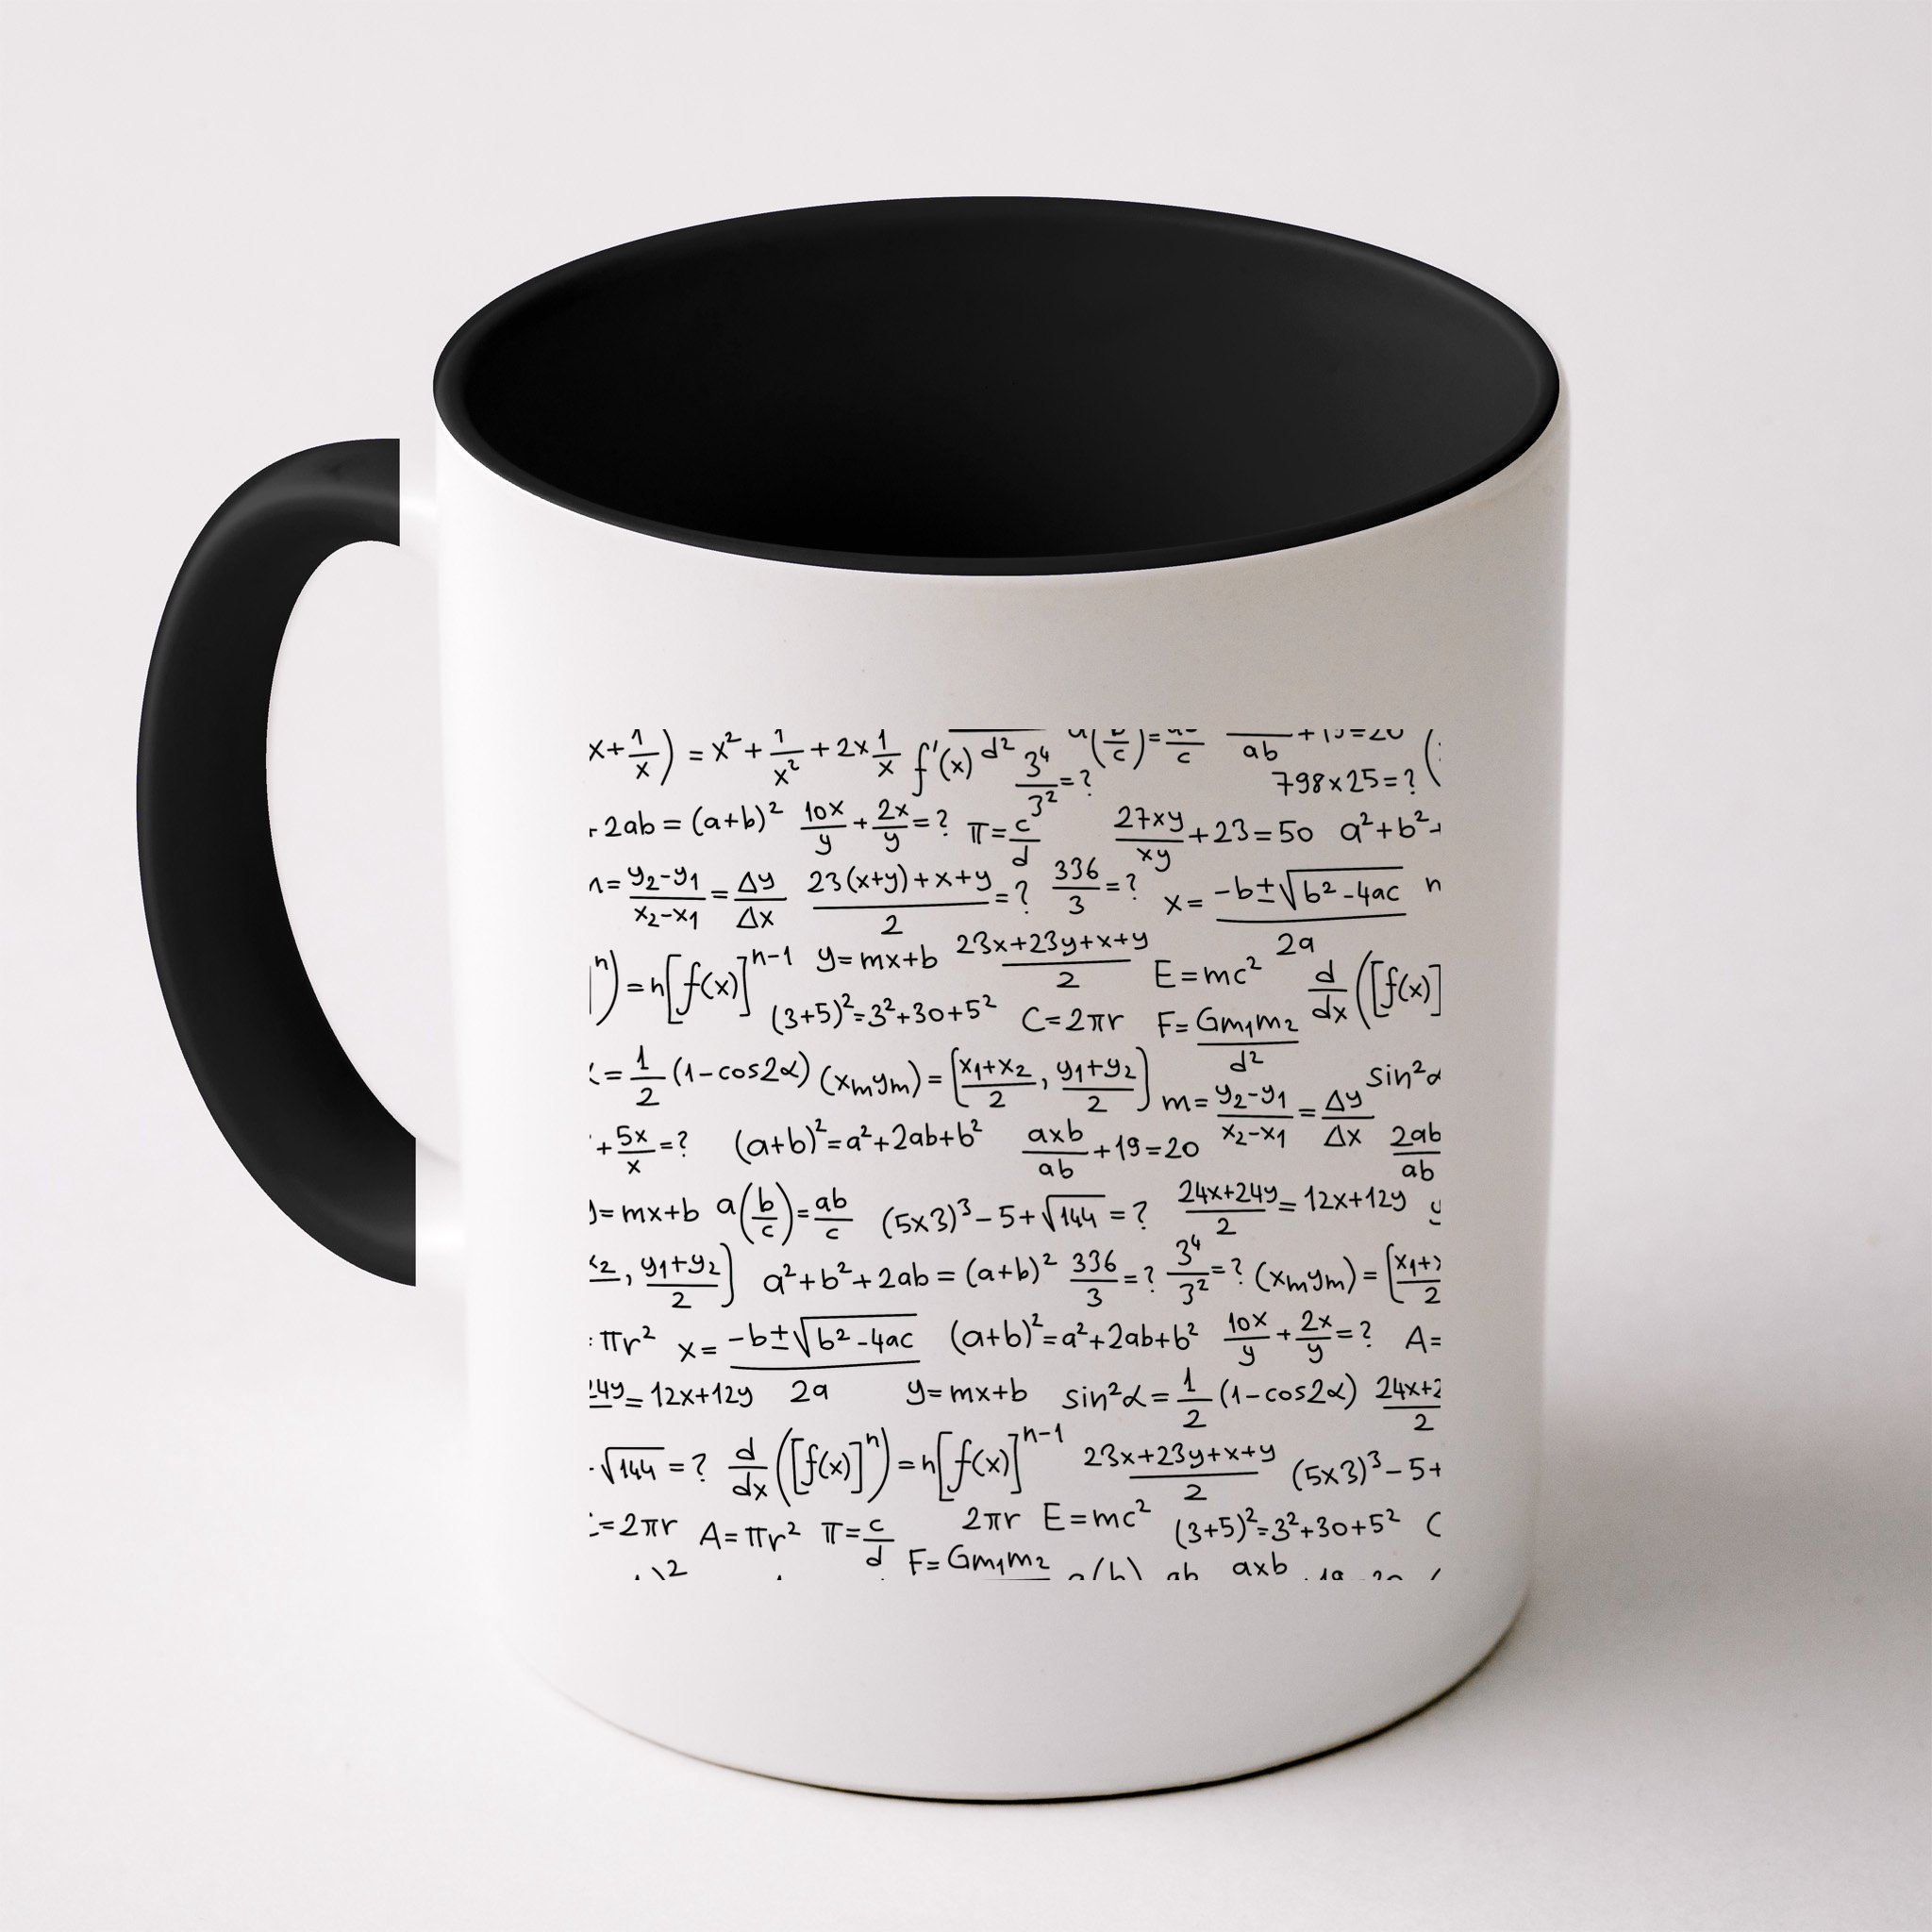 x+1/x) = x²+1/x²+2x1/x f'(x) d² 3⁴/3²=? a(b/c)=ab/c /ab+19=20
798x25=?
2ab=(a+b)² 10x/y+2x/y=? π=c/d 27xy/xy+23=50 a²+b²+
=y₂-y₁/x₂-x₁=Δy/Δx 23(x+y)+x+y/2=? 336/3=? x=-b±√b²-4ac/2a n
n)=n[f(x)]ⁿ⁻¹ y=mx+b 23x+23y+x+y/2 E=mc² d/dx([f(x)]
(3+5)²=3²+30+5² C=2πr F=Gm₁m₂/d²
=1/2(1-cos2α) (xₘyₘ)=[x₁+x₂/2, y₁+y₂/2] m=y₂-y₁/x₂-x₁=Δy/Δx sin²α
+5x/x=? (a+b)²=a²+2ab+b² axb/ab+19=20 2ab/ab
=mx+b a(b/c)=ab/c (5x3)³-5+√144=? 24x+24y/2=12x+12y
, y₁+y₂/2] a²+b²+2ab=(a+b)² 336/3=? 3⁴/3²=? (xₘyₘ)=[x₁+
πr² x=-b±√b²-4ac/2a (a+b)²=a²+2ab+b² 10x/y+2x/y=? A=
4y=12x+12y y=mx+b sin²α=1/2(1-cos2α) 24x+2/2
√144=? d/dx([f(x)]ⁿ)=n[f(x)]ⁿ⁻¹ 23x+23y+x+y/2 (5x3)³-5+
=2πr A=πr² π=c/d 2πr E=mc² (3+5)²=3²+30+5² C
F=Gm₁m₂ axb